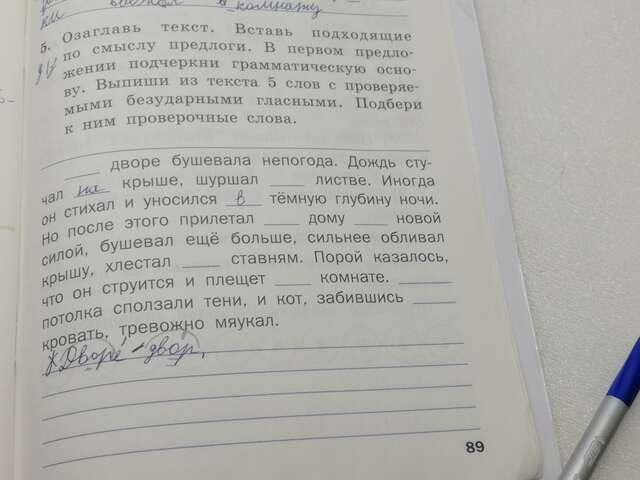 ки вбежал в комнату
5. Озаглавь текст. Вставь подходящие
по смыслу предлоги. В первом предло-
жении подчеркни грамматическую осно-
ву. Выпиши из текста 5 слов с проверяе-
мыми безударными гласными. Подбери
к ним проверочные слова.
____ дворе бушевала непогода. Дождь сту-
чал на крыше, шуршал ____ листве. Иногда
он стихал и уносился в тёмную глубину ночи.
Но после этого прилетал ____ дому ____ новой
силой, бушевал ещё больше, сильнее обливал
крышу, хлестал ____ ставням. Порой казалось,
что он струится и плещет ____ комнате. ____
потолка сползали тени, и кот, забившись ____
кровать, тревожно мяукал.
Дворе - двор,
89